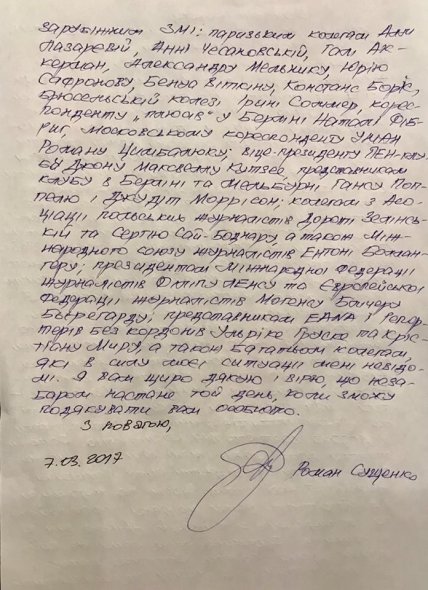 зарубіжним ЗМІ: паризьким колегам Аллі
Лазаревій, Анні Чесановській, Галі Ак-
керман, Александру Мельнику, Юрію
Сафронову, Бенуа Віткіну, Констанс Боріс,
Брюсельській колезі Ірині Соммер, корес-
понденту „плюсів" у Берліні Наталі Фіб-
риг, Московському кореспонденту УНІАН
Роману Цимбалюку; віце-президенту ПЕН-клу-
бу Джону Максвеллу Кутзее, представникам
клубу в Берліні та Мельбурні Гансу Поп-
пелю і Джудіт Моррісон; колегам з Асо-
ціації польських журналістів Дороті Зелінсь-
кій та Сергію Сай-Боднару, а також Між-
народного союзу журналістів Ентоні
президентам Міжнародної Федерації
журналістів Філіпу Леньсу та Європейської
Федерації журналістів Могенсу Блічеру
Б'єрегарду; представникам ЕАПА і Репор-
терів без кордонів Ульріке Груска та Крис-
тіану Міру, а також багатьом колегам,
які в силу моєї ситуації мені невідо-
мі. Я вам щиро дякую і вірю, що неза-
баром настане той день, коли зможу
подякувати вам особисто.
З повагою,
7.03.2017
Роман Сущенко